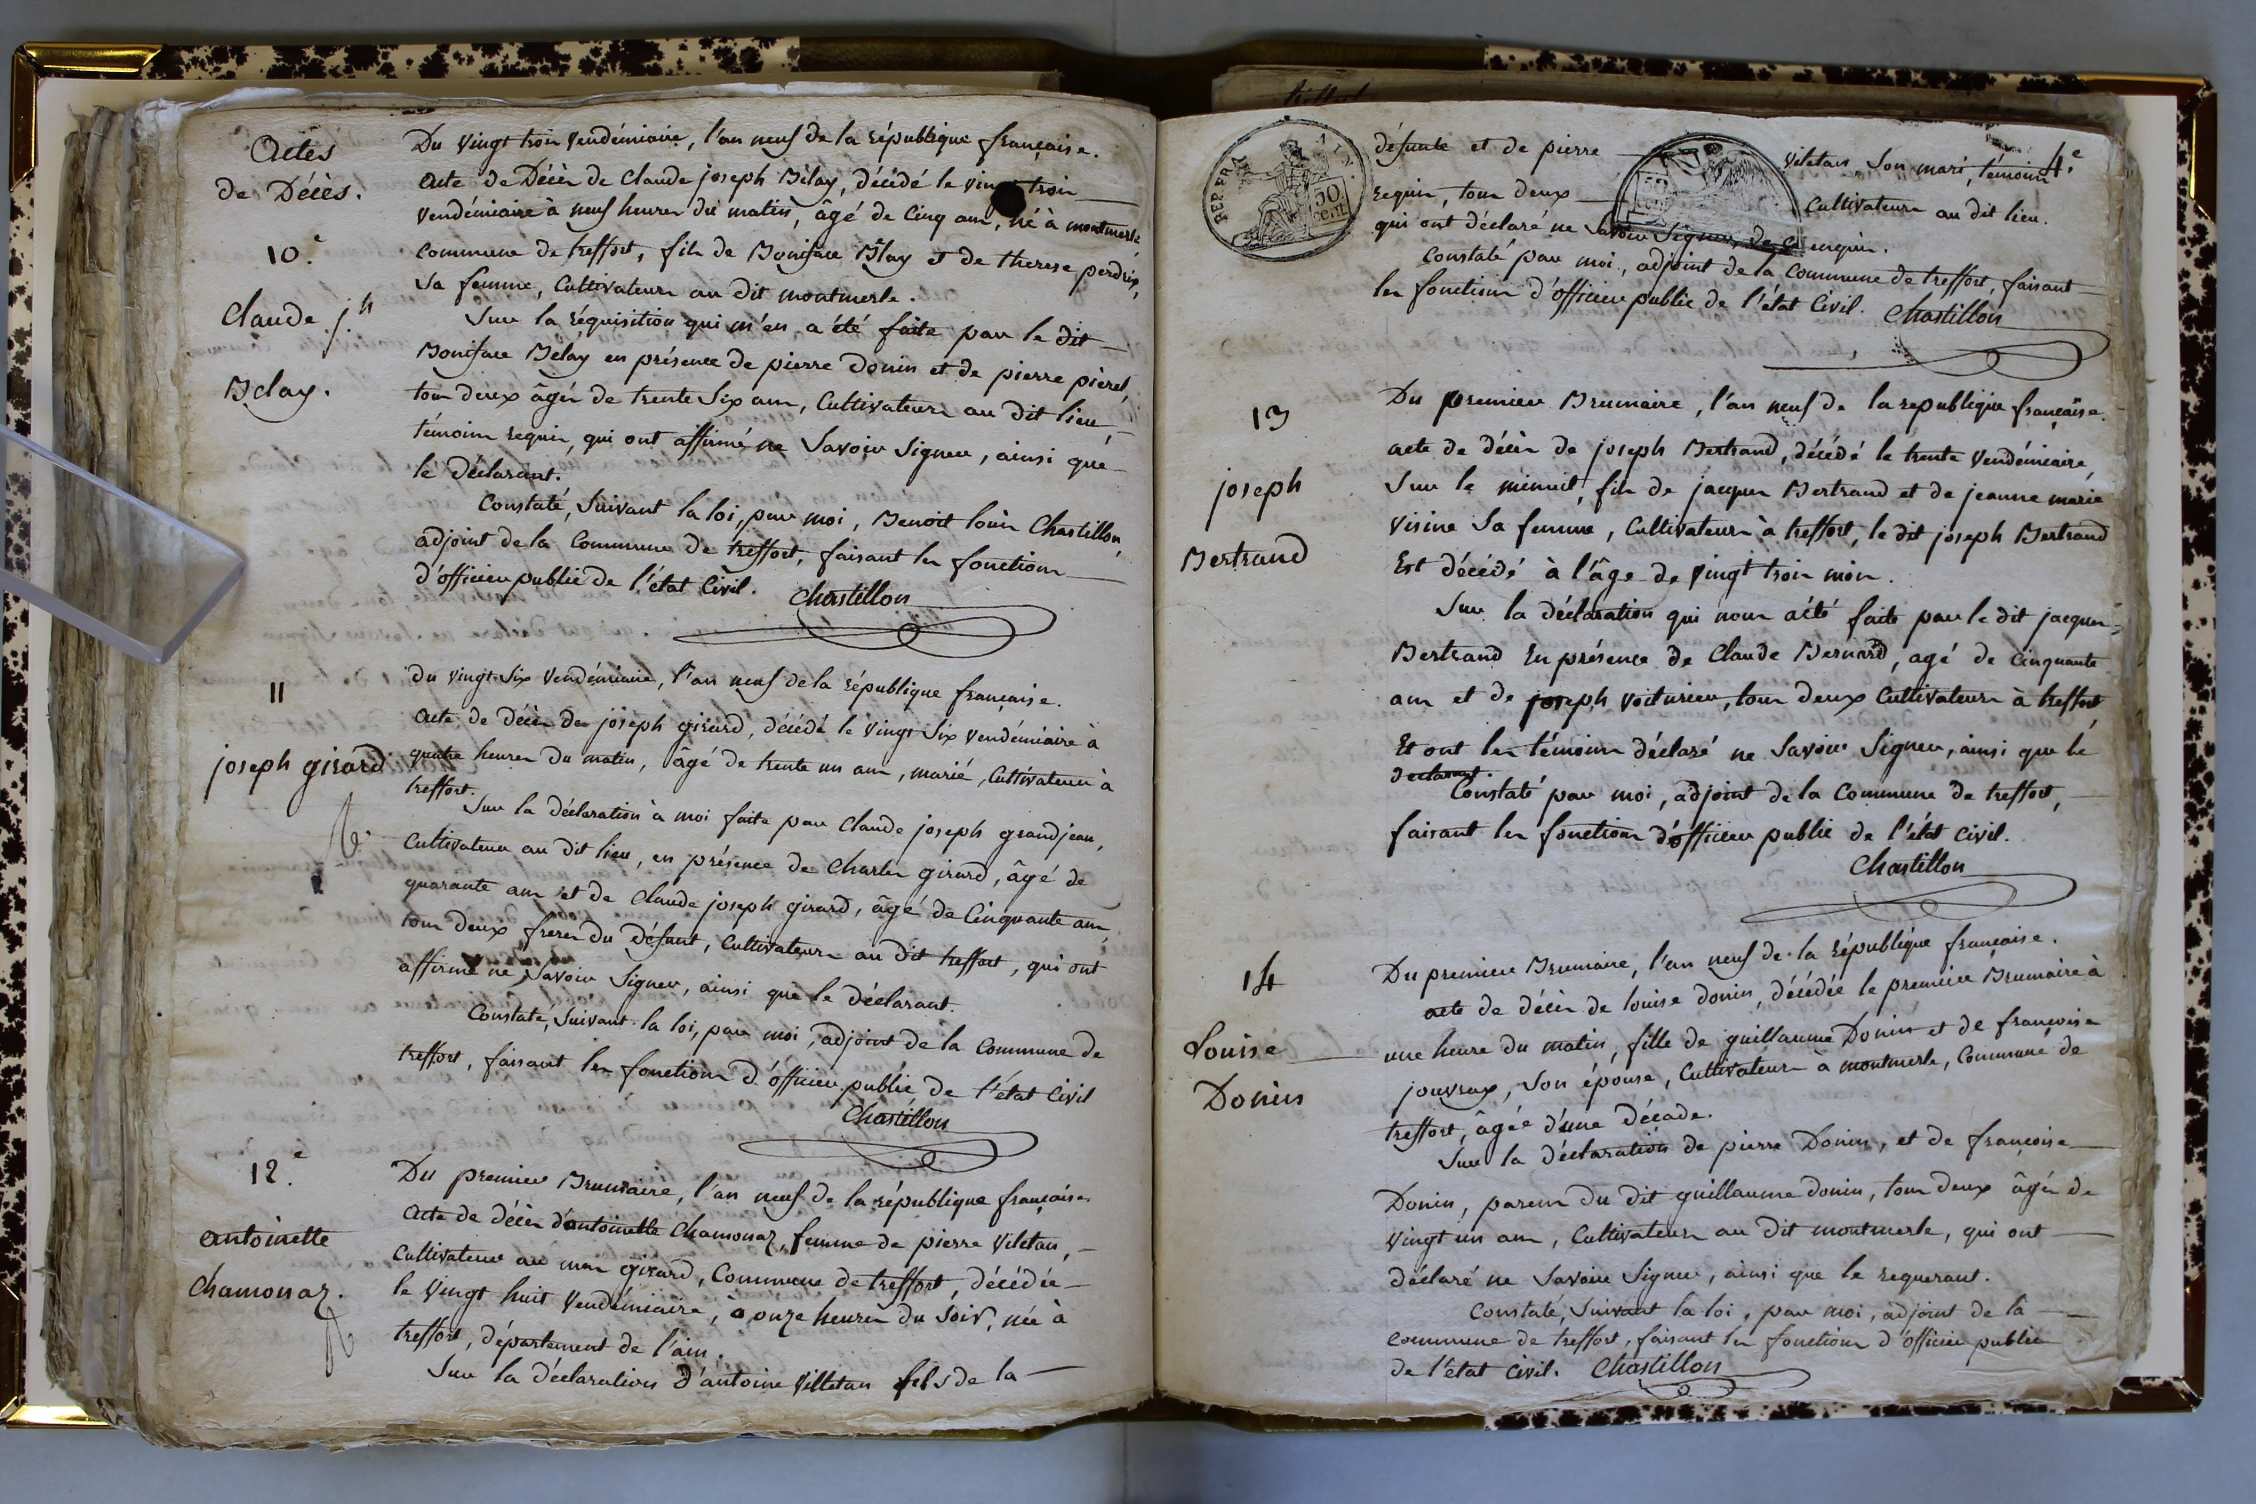 Actes
de Décès.
10.e
Claude j.h
Belay.
Du vingt trois vendémiaire, l'an neuf de la république française.
acte de Décès de Claude joseph Bélay, décédé le vin trois
vendémiaire à neuf heures du matin, âgé de cinq ans, né à montmerle
commune de treffort, fils de Boniface Blay et de therese perdrix,
sa femme, cultivateurs au dit montmerle.
Sur la réquisition qui m'en a été faite par le dit
Boniface Belay en présence de pierre Donin et de pierre pièrel,
tous deux âgés de trente six ans, cultivateurs au dit lieu,
témoins requis, qui ont affirmé ne savoir signer, ainsi que
le déclarant.
Constaté, suivant la loi, par moi, Benoit louis Chastillon,
adjoint de la commune de treffort, faisant les fonctions
d'officier public de l'état civil. Chastillon
11
joseph girard
du vingt six vendémiaire, l'an neuf de la république française.
acte de décès de joseph girard, décédé le vingt six vendémiaire à
quatre heures du matin, âgé de trente un ans, marié, cultivateur à
treffort.
Sur la déclaration à moi faite par Claude joseph grandjean,
cultivateur au dit lieu, en présence de Charles girard, âgé de
quarante ans et de Claude joseph girard, âgé de cinquante ans,
tous deux freres du défunt, cultivateurs au dit treffort, qui ont
affirmé ne savoir signer, ainsi que le déclarant.
Constaté, suivant la loi, par moi, adjoint de la commune de
treffort, faisant les fonctions d'officier public de l'état civil
Chastillon
12.e
antoinette
chamonaz.
Du premier Brumaire, l'an neuf de la république française
acte de décès d'antoinette chamonaz, femme de pierre viletan,
cultivateur au mas girard, commune de treffort, décédée
le vingt huit vendémiaire, à onze heures du soir, née à
treffort, département de l'ain.
Sur la déclaration d'antoine villetan fils de la
4.e
défunte et de pierre viletan son mari, témoins
requis, tous deux cultivateurs au dit lieu.
qui ont déclaré ne savoir signer, de ce enquis.
Constaté par moi, adjoint de la commune de treffort, faisant
les fonctions d'officier public de l'état civil. Chastillon
50
cent.
13
joseph
Bertrand
Du premier Brumaire, l'an neuf de la republique française.
acte de décès de joseph Bertrand, décédé le trente vendémiaire,
sur le minuit, fils de jacques Bertrand et de jeanne marie
visine sa femme, cultivateurs à treffort, le dit joseph Bertrand
Est décédé à l'âge de vingt trois mois.
Sur la déclaration qui nous a été faite par le dit jacques
Bertrand En présence de Claude Bernard, agé de cinquante
ans et de joseph voiturier, tous deux cultivateurs à treffort,
Et ont les témoins déclaré ne savoir signer, ainsi que le
declarant.
Constaté par moi, adjoint de la commune de treffort,
faisant les fonctions d'officier public de l'état civil.
Chastillon
14
Louise
Donin
Du premier Brumaire, l'an neuf de la république française.
acte de décès de louise donin, décédée le premier Brumaire à
une heure du matin, fille de guillaume Donin et de françoise
jouvray, son épouse, cultivateurs à montmerle, commune de
treffort, âgée d'une décade.
Sur la déclaration de pierre Donin, et de françoise
Donin, parens du dit guillaume donin, tous deux âgés de
vingt un ans, cultivateurs au dit montmerle, qui ont
déclaré ne savoir signer, ainsi que le requerant.
Constaté, suivant la loi, par moi, adjoint de la
commune de treffort, faisant les fonctions d'officier public
de l'état civil. Chastillon